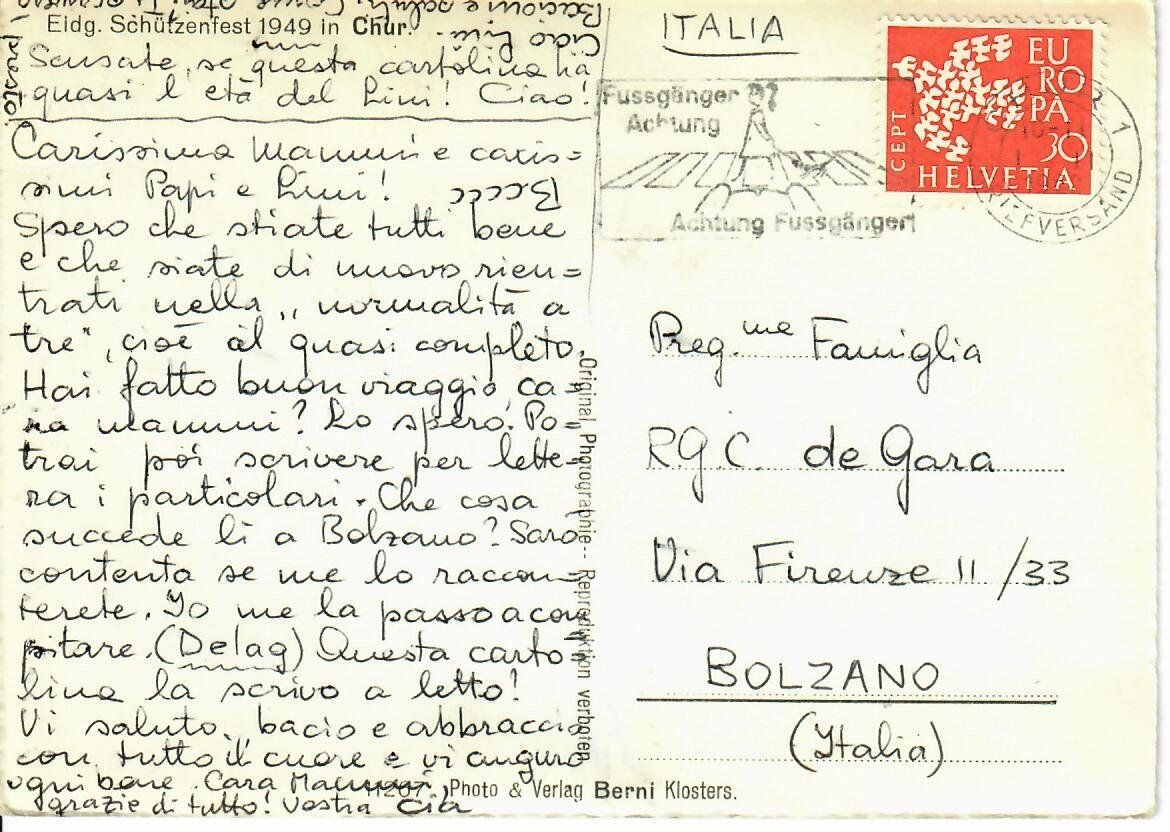 Eidg. Schützenfest 1949 in Chur.
Scusate, se questa cartolina ha
quasi l'età del Lini! Ciao!
presto!
Carissima Mammi e caris=
simi Papi e Lini!
Spero che stiate tutti bene
e che siate di nuovo rien=
trati nella „normalità a
tre", cioè al quasi completo.
Hai fatto buon viaggio, ca=
ra mammi? Lo spero. Po=
trai poi scrivere per lette=
ra i particolari. Che cosa
succede lì a Bolzano? Sarò
contenta se me lo raccon=
terete. Io me la passo a com
pitare. (Delag) Questa carto=
lina la scrivo a letto!
Vi saluto, bacio e abbraccio
con tutto il cuore e vi auguro
ogni bene. Cara Mammi,
grazie di tutto! Vostra Cia
Ciao Lini.
Original Photographie - Reproduktion verboten
11267 Photo & Verlag Berni Klosters.
ITALIA
Fussgänger
Achtung
Achtung Fussgänger
EUROPA
CEPT
30
HELVETIA
1
BRIEFVERSAND
Preg.me Famiglia
R.G.C. de Gara
Via Firenze 11/33
BOLZANO
(Italia)